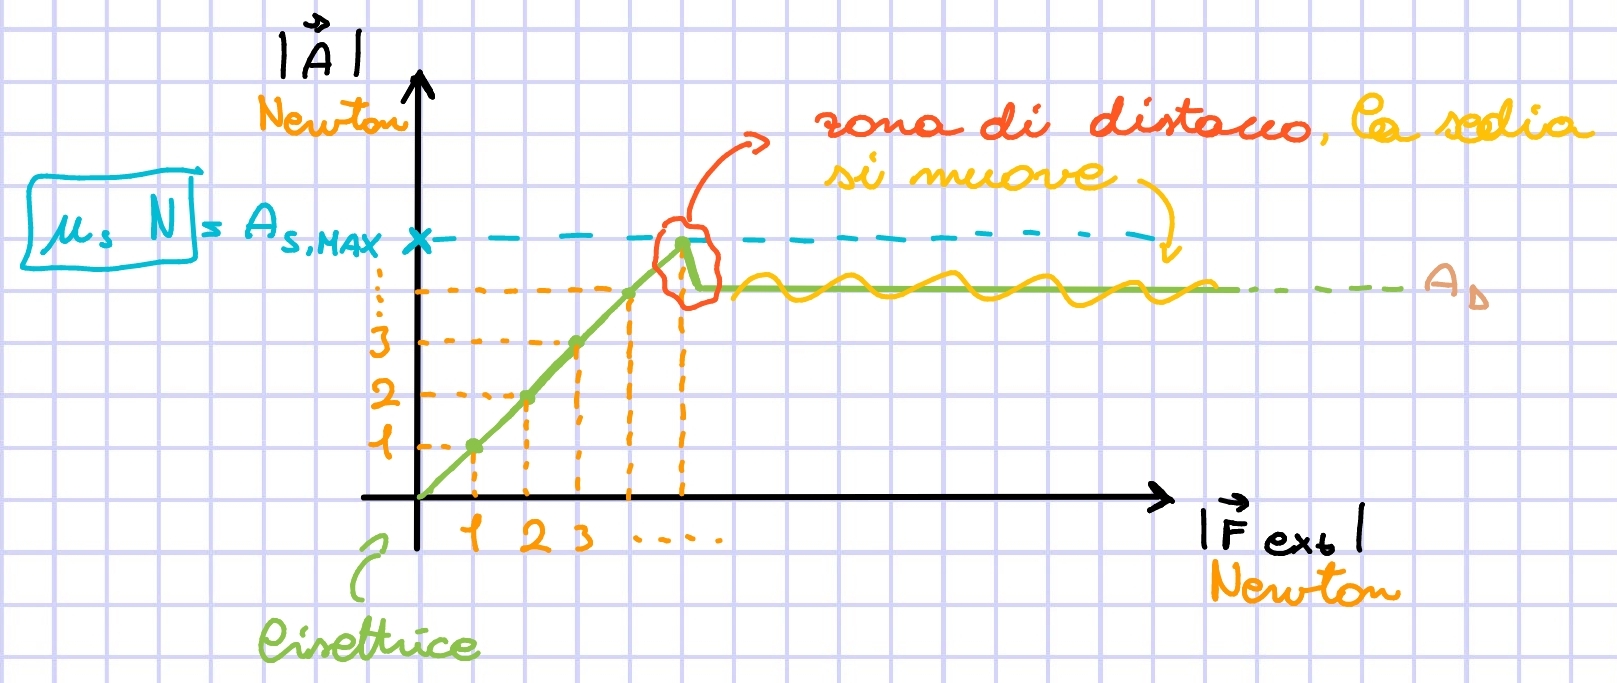 |A⃗|
Newton
zona di distacco, la sedia
si muove
μₛ N = A S,MAX
A D
3
2
1
1 2 3 .....
|F⃗ ext|
Newton
bisettrice